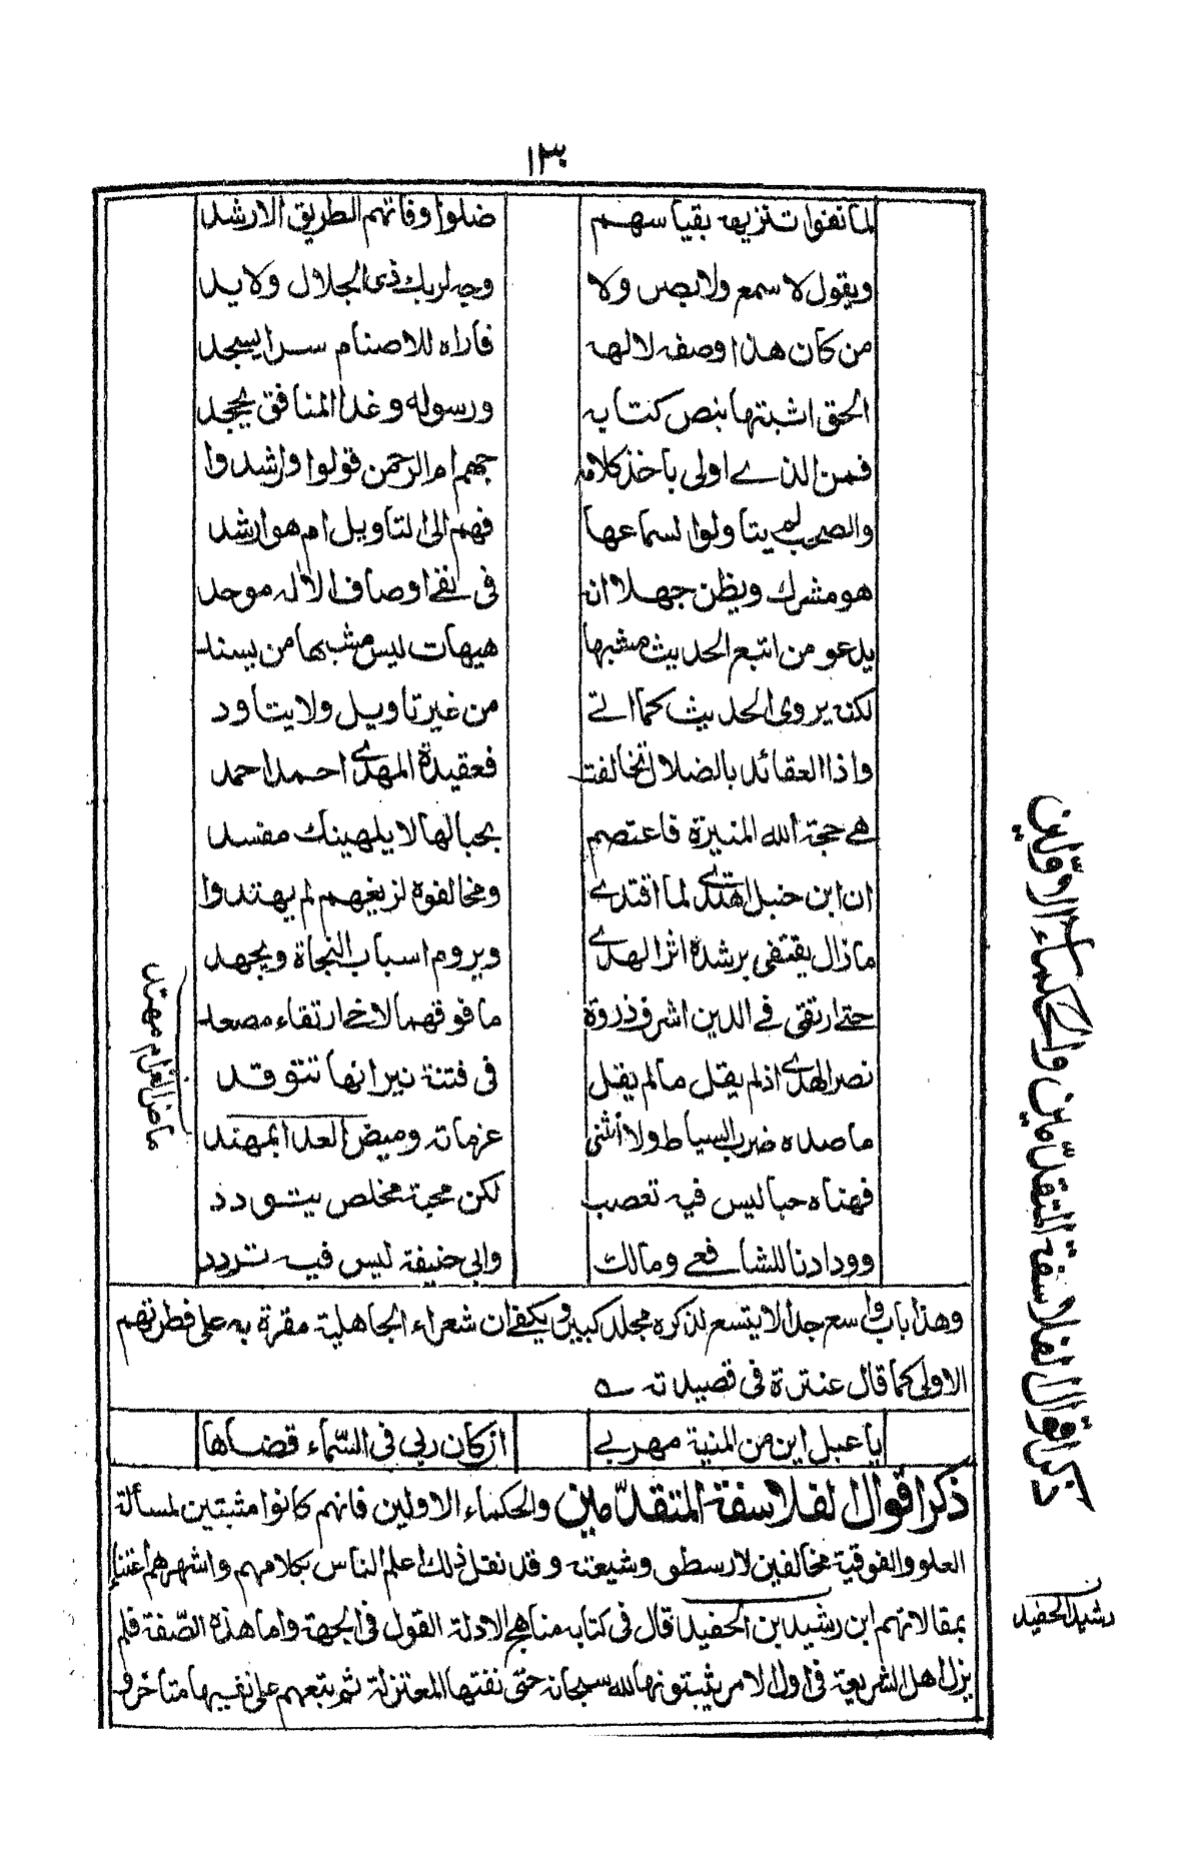 ١٣٠
لما نفوا تنزيهه بقياسهم ضلوا وفاتهم الطريق الارشد
ويقول لا سمع ولا بصر ولا وجه لربك ذى الجلال ولا يد
من كان هذا وصفه لالهه فاراه للاصنام سرا يسجد
الحق اثبتها بنص كتابه ورسوله وغدا المنافق يجحد
فمن الذے اولى باخذ كلامه جهم ام الرحمن قولوا وارشدوا
والصحب لم يتاولوا لسماعها فهم الى التاويل ام هو ارشد
هو مشرك ويظن جهلا ان فى نفے اوصاف الاله موحد
يدعو من اتبع الحديث مشبها هيهات ليس مشبها من يسند
لكنه يروى الحديث كما اتے من غير تاويل ولا يتاود
واذا العقائد بالضلال تخالفت فعقيدة المهدے احمد احمد
هے حجة الله المنيرة فاعتصم بحبالها لا يلهينك مفسد
ان ابن حنبل اهتدے لما اقتدے ومخالفوه لزيغهم لم يهتدوا
ما زال يقتفى برشده اثر الهدے ويروم اسباب النجاة ويجهد
حتے ارتقى فے الدين اشرف ذروة ما فوقها لاخ ارتقاء مصعد
نصر الهدے اذ لم يقل ما لم يقل فى فتنة نيرانها تتوقد
ما صده ضرب السياط ولا انثنى عزماته وميض العدا بمهند
ماض الغرام مهتد
فهناه حبا ليس فيه تعصب لكن محبة مخلص يتودد
وودادنا للشافعے ومالك وابى حنيفة ليس فيه تردد
وهذا باب واسع جدا لا يتسع لذكره مجلد كبير ويكفے ان شعراء الجاهلية مقرة به على فطرتهم
الاولى كما قال عنترة فى قصيدته
يا عبل اين من المنية مهربے ان كان ربى فى السّماء قضاها
ذكر اقوال الفلاسفة المتقدّمين والحكماء الاولين فانهم كانوا مثبتين لمسألة
العلو والفوقية مخالفين لارسطو وشيعته وقد نقل ذلك اعلم الناس بكلامهم واشهرهم اعتناء
بمقالاتهم ابن رشيد بن الحفيد قال فى كتابه مناهج الادلة القول فى الجهة واما هذه الصّفة فلم
يزل اهل الشريعة فى اول الامر يثبتونها لله سبحانه حتى نفتها المعتزلة ثم تبعهم على نفيها متاخرو
ذكر اقوال الفلاسفة المتقدّمين والحكماء الاوّلين
رشيد الحفيد